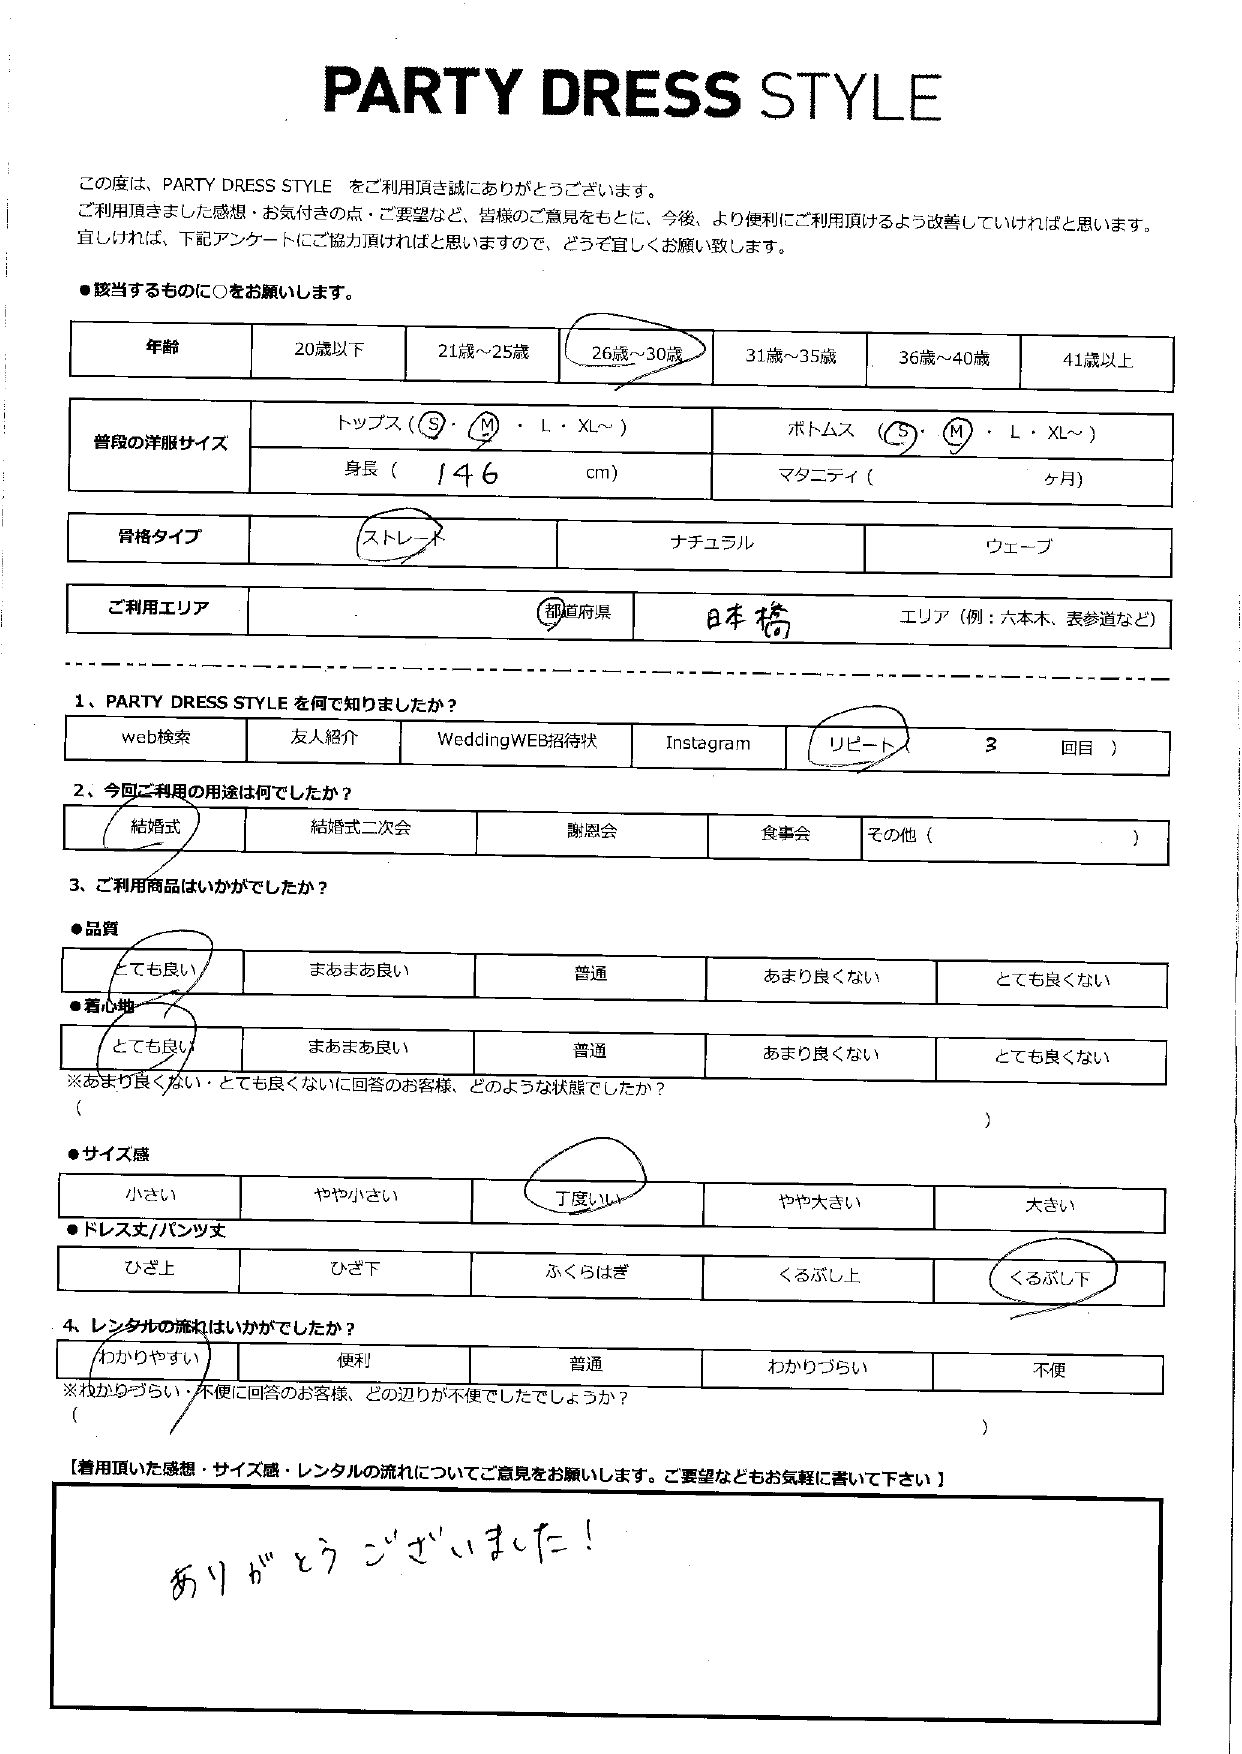 PARTY DRESS STYLE
この度は、PARTY DRESS STYLE をご利用頂き誠にありがとうございます。
ご利用頂きました感想・お気付きの点・ご要望など、皆様のご意見をもとに、今後、より便利にご利用頂けるよう改善していければと思います。
宜しければ、下記アンケートにご協力頂ければと思いますので、どうぞ宜しくお願い致します。
●該当するものに○をお願いします。
年齢 20歳以下 21歳～25歳 26歳～30歳 31歳～35歳 36歳～40歳 41歳以上
普段の洋服サイズ トップス (S・M・L・XL～) ボトムス (S・M・L・XL～)
身長 ( 146 cm) マタニティ ( ヶ月)
骨格タイプ ストレート ナチュラル ウェーブ
ご利用エリア 都道府県 日本橋 エリア（例：六本木、表参道など）
1、PARTY DRESS STYLE を何で知りましたか？
web検索 友人紹介 WeddingWEB招待状 Instagram リピート( 3 回目 )
2、今回ご利用の用途は何でしたか？
結婚式 結婚式二次会 謝恩会 食事会 その他 ( )
3、ご利用商品はいかがでしたか？
●品質
とても良い まあまあ良い 普通 あまり良くない とても良くない
●着心地
とても良い まあまあ良い 普通 あまり良くない とても良くない
※あまり良くない・とても良くないに回答のお客様、どのような状態でしたか？
( )
●サイズ感
小さい やや小さい 丁度いい やや大きい 大きい
●ドレス丈/パンツ丈
ひざ上 ひざ下 ふくらはぎ くるぶし上 くるぶし下
4、レンタルの流れはいかがでしたか？
わかりやすい 便利 普通 わかりづらい 不便
※わかりづらい・不便に回答のお客様、どの辺りが不便でしたでしょうか？
( )
【着用頂いた感想・サイズ感・レンタルの流れについてご意見をお願いします。ご要望などもお気軽に書いて下さい】
ありがとうございました！